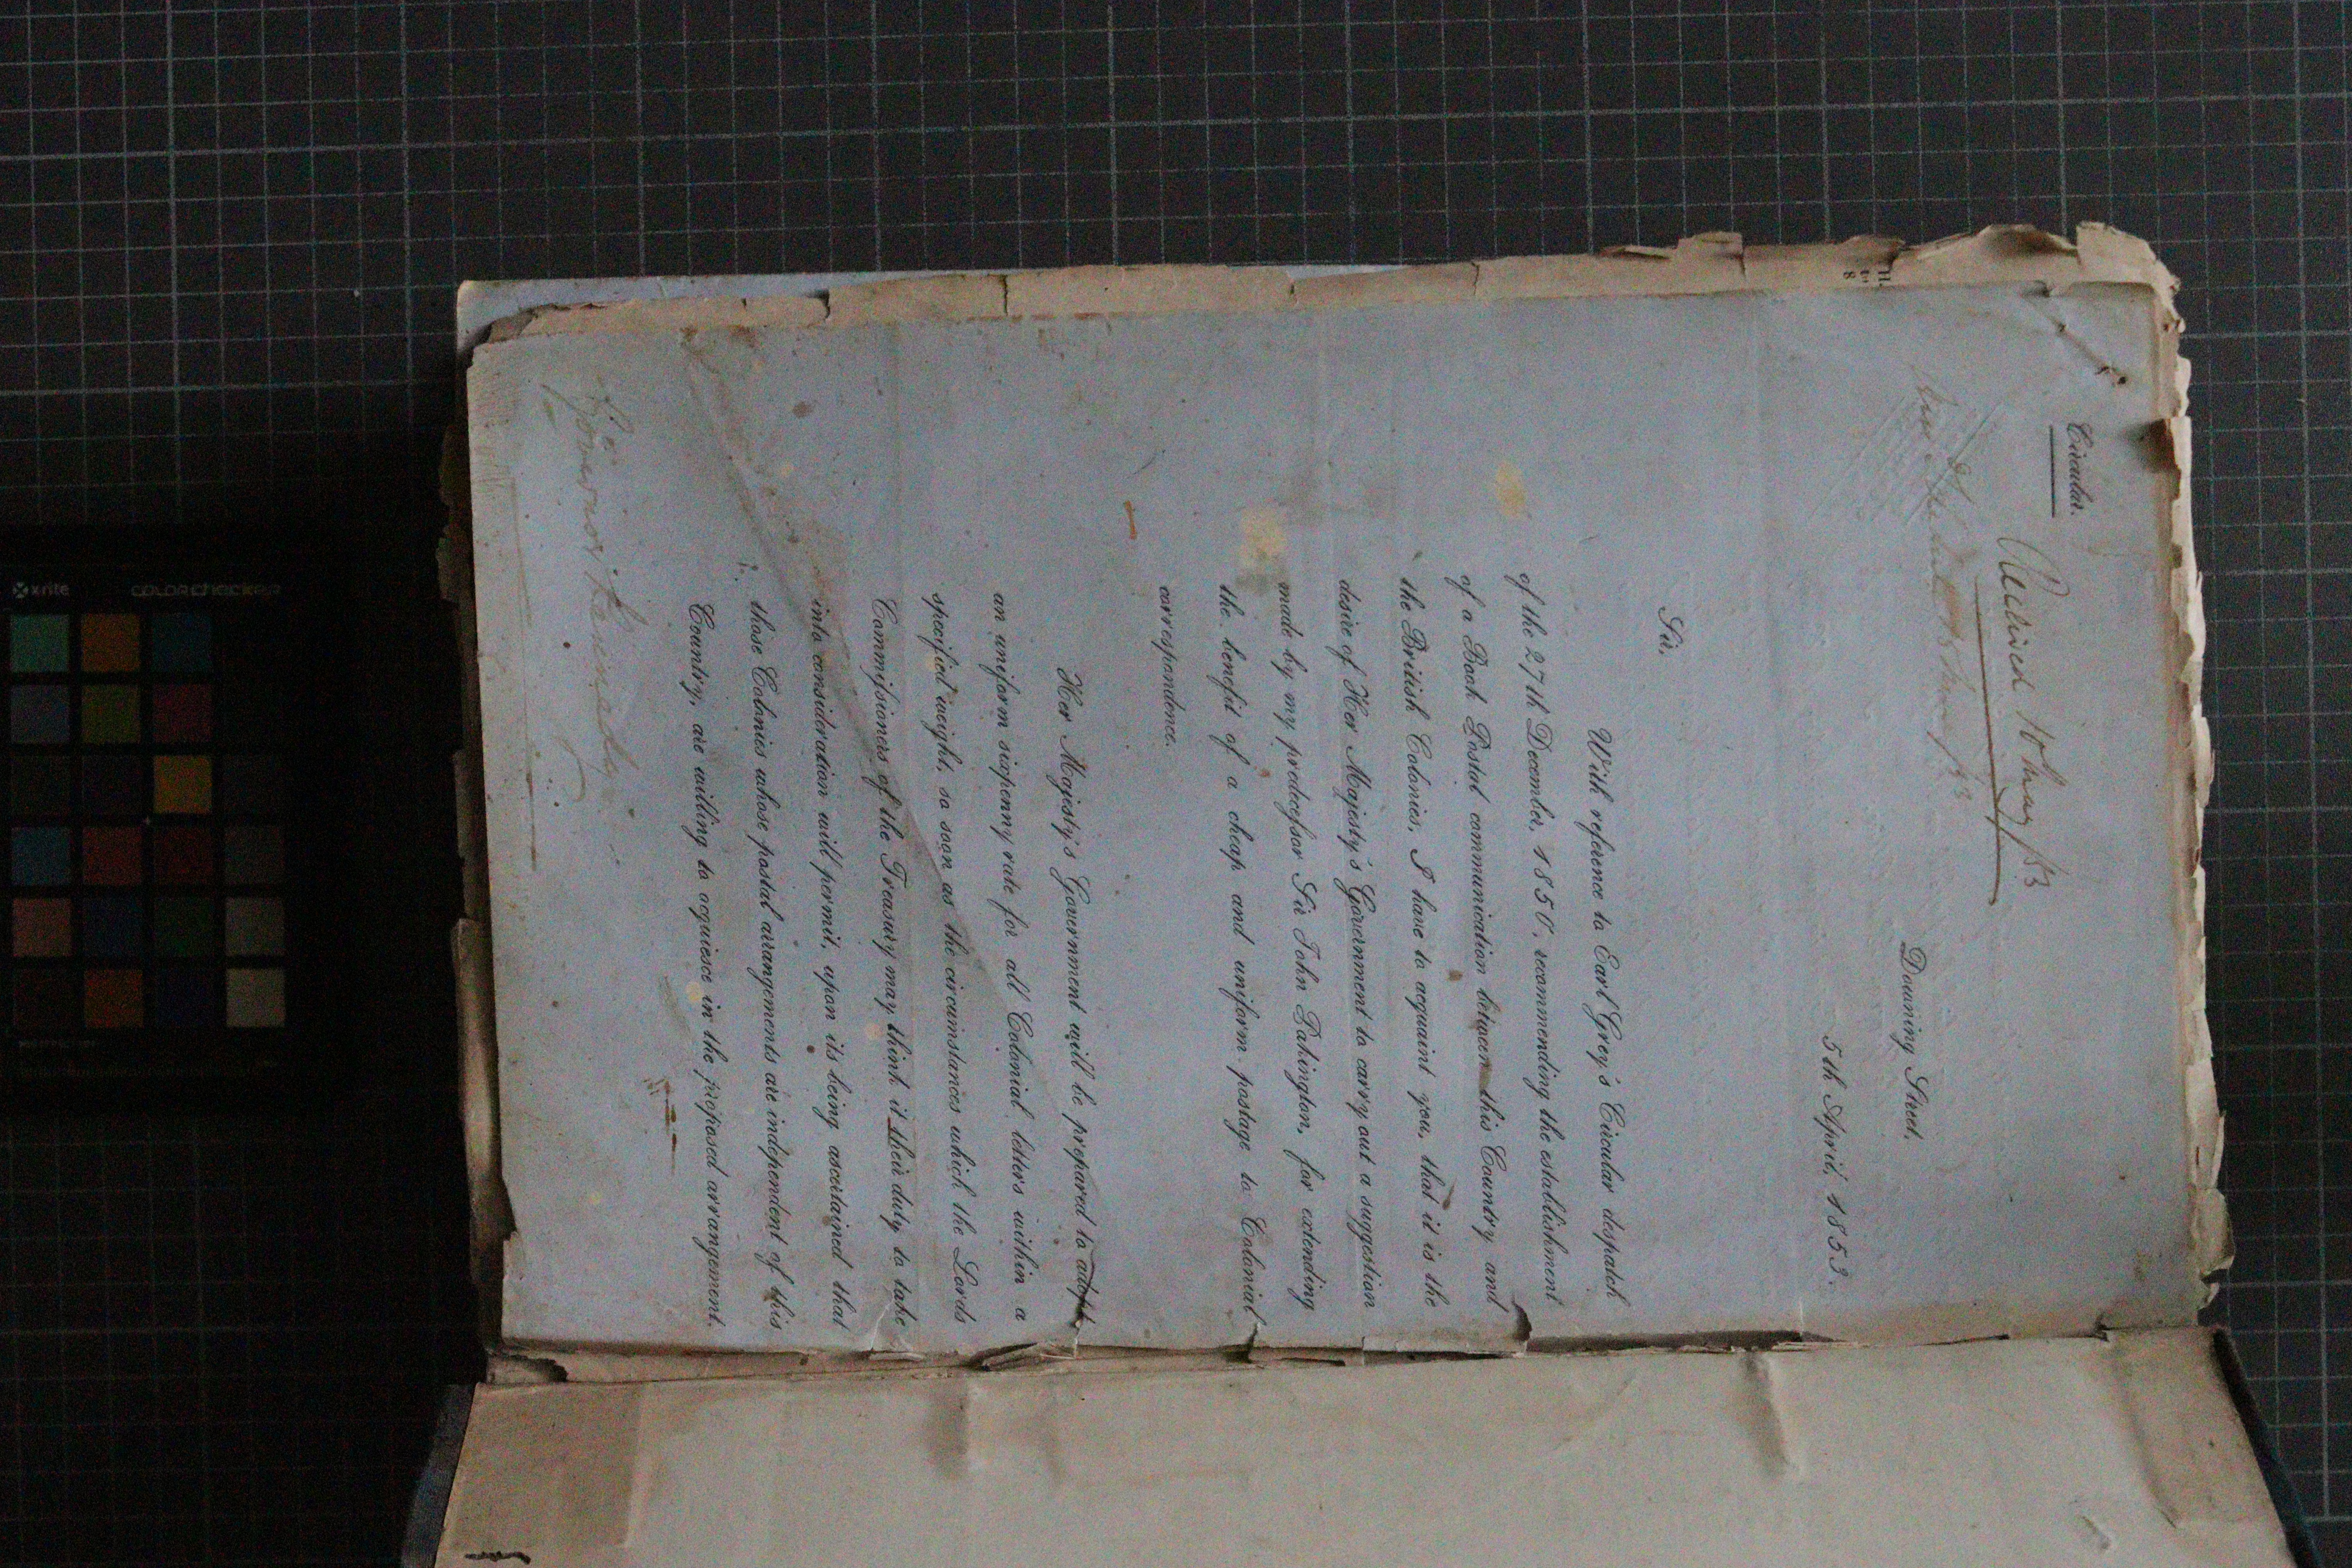 Circular.
Received 10 May /53
Downing Street.
5th April, 1853.
Sir,
With reference to Earl Grey's Circular despatch
of the 27th December, 1850, recommending the establishment
of a Book Postal communication between this Country and
the British Colonies, I have to acquaint you, that it is the
desire of Her Majesty's Government to carry out a suggestion
made by my predecessor Sir John Pakington, for extending
the benefit of a cheap and uniform postage to Colonial
correspondence.
Her Majesty's Government will be prepared to adopt
an uniform sixpenny rate for all Colonial letters within a
specified weight, so soon as the circumstances which the Lords
Commissioners of the Treasury may think it their duty to take
into consideration will permit, upon its being ascertained that
those Colonies whose postal arrangements are independent of this
Country, are willing to acquiesce in the proposed arrangement.
Governor Kennedy
x·rite
COLORCHECKER